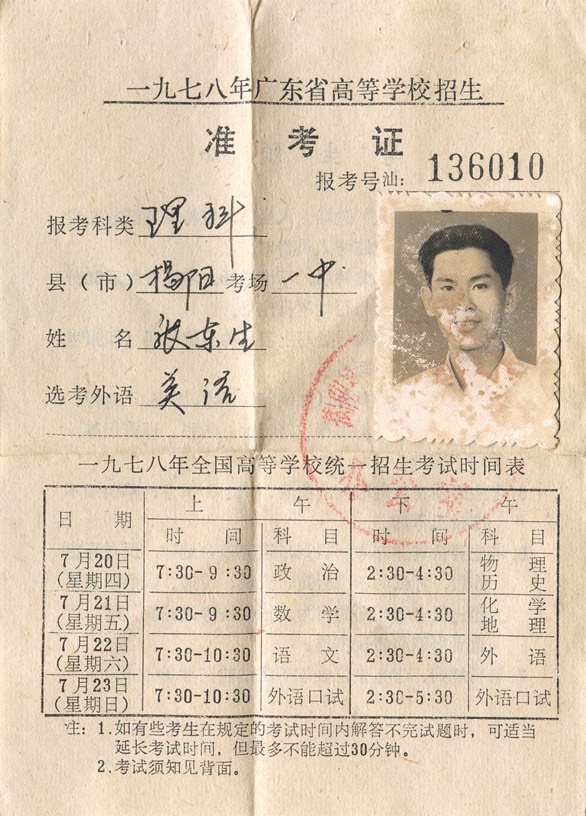 一九七八年广东省高等学校招生
准考证
报考号汕: 136010
报考科类 理科
县（市）揭阳 考场 一中
姓名 张东生
选考外语 英语
一九七八年全国高等学校统一招生考试时间表
日期 上午 下午
时间 科目 时间 科目
7月20日（星期四） 7:30-9:30 政治 2:30-4:30 物理 历史
7月21日（星期五） 7:30-9:30 数学 2:30-4:30 化学 地理
7月22日（星期六） 7:30-10:30 语文 2:30-4:30 外语
7月23日（星期日） 7:30-10:30 外语口试 2:30-5:30 外语口试
注: 1.如有些考生在规定的考试时间内解答不完试题时，可适当
延长考试时间，但最多不能超过30分钟。
2.考试须知见背面。